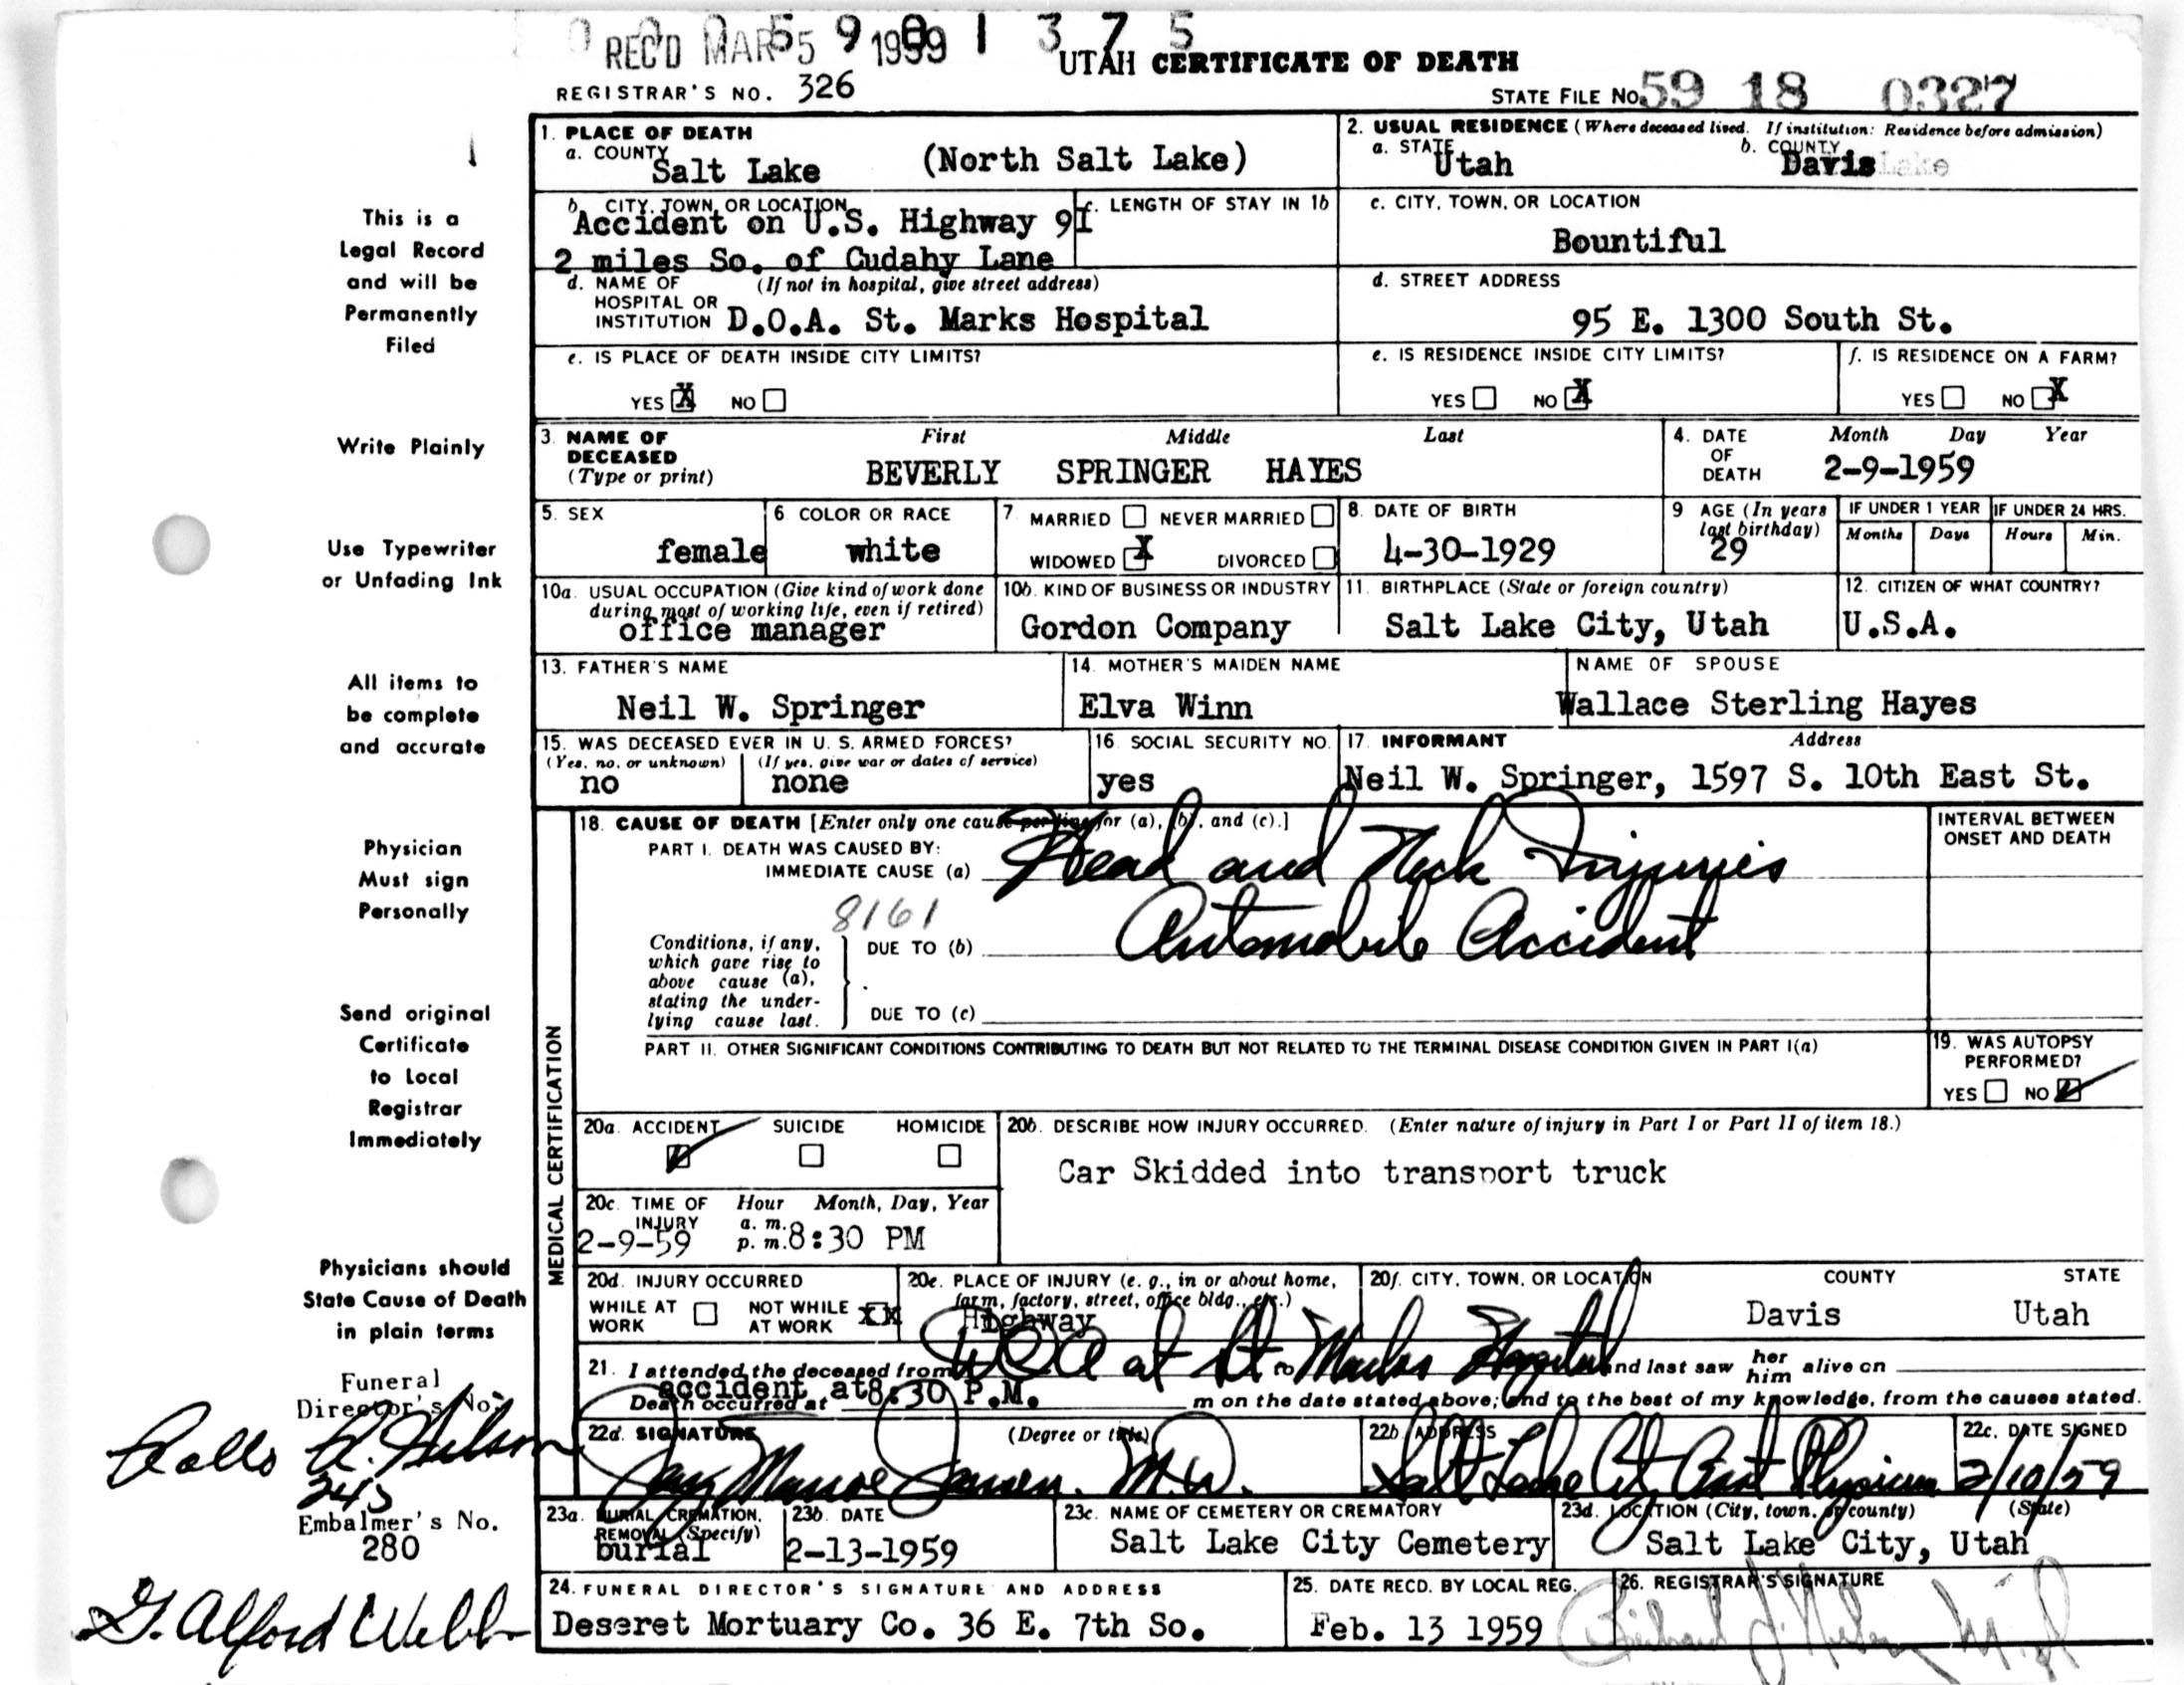 REC'D MAR 5 1959 1 3 7 5
UTAH CERTIFICATE OF DEATH
REGISTRAR'S NO. 326
STATE FILE No. 59 18 0327
1. PLACE OF DEATH
a. COUNTY
Salt Lake (North Salt Lake)
2. USUAL RESIDENCE (Where deceased lived. If institution: Residence before admission)
a. STATE Utah
b. COUNTY Davis
b. CITY, TOWN, OR LOCATION
Accident on U.S. Highway 91
2 miles So. of Cudahy Lane
c. LENGTH OF STAY IN 1b
c. CITY, TOWN, OR LOCATION
Bountiful
d. NAME OF (If not in hospital, give street address)
HOSPITAL OR
INSTITUTION D.O.A. St. Marks Hospital
d. STREET ADDRESS
95 E. 1300 South St.
e. IS PLACE OF DEATH INSIDE CITY LIMITS?
YES X NO
e. IS RESIDENCE INSIDE CITY LIMITS?
YES NO X
f. IS RESIDENCE ON A FARM?
YES NO X
3. NAME OF
DECEASED
(Type or print)
First Middle Last
BEVERLY SPRINGER HAYES
4. DATE
OF
DEATH
Month Day Year
2-9-1959
5. SEX
female
6 COLOR OR RACE
white
7 MARRIED NEVER MARRIED
WIDOWED X DIVORCED
8. DATE OF BIRTH
4-30-1929
9 AGE (In years
last birthday)
29
IF UNDER 1 YEAR
Months Days
IF UNDER 24 HRS.
Hours Min.
10a. USUAL OCCUPATION (Give kind of work done
during most of working life, even if retired)
office manager
10b. KIND OF BUSINESS OR INDUSTRY
Gordon Company
11. BIRTHPLACE (State or foreign country)
Salt Lake City, Utah
12. CITIZEN OF WHAT COUNTRY?
U.S.A.
13. FATHER'S NAME
Neil W. Springer
14. MOTHER'S MAIDEN NAME
Elva Winn
NAME OF SPOUSE
Wallace Sterling Hayes
15. WAS DECEASED EVER IN U. S. ARMED FORCES?
(Yes, no, or unknown) (If yes, give war or dates of service)
no none
16. SOCIAL SECURITY NO.
yes
17. INFORMANT Address
Neil W. Springer, 1597 S. 10th East St.
MEDICAL CERTIFICATION
18. CAUSE OF DEATH [Enter only one cause per line for (a), (b), and (c).]
PART I. DEATH WAS CAUSED BY:
IMMEDIATE CAUSE (a) Head and Neck Injuries
8161
Conditions, if any,
which gave rise to
above cause (a),
stating the under-
lying cause last.
DUE TO (b) Automobile Accident
DUE TO (c)
INTERVAL BETWEEN
ONSET AND DEATH
PART II. OTHER SIGNIFICANT CONDITIONS CONTRIBUTING TO DEATH BUT NOT RELATED TO THE TERMINAL DISEASE CONDITION GIVEN IN PART I(a)
19. WAS AUTOPSY
PERFORMED?
YES NO
20a. ACCIDENT SUICIDE HOMICIDE
20b. DESCRIBE HOW INJURY OCCURRED. (Enter nature of injury in Part I or Part II of item 18.)
Car Skidded into transport truck
20c. TIME OF Hour Month, Day, Year
INJURY a. m.
2-9-59 p. m. 8:30 PM
20d. INJURY OCCURRED
WHILE AT
WORK
NOT WHILE
AT WORK XX
20e. PLACE OF INJURY (e. g., in or about home,
farm, factory, street, office bldg., etc.)
Highway
20f. CITY, TOWN, OR LOCATION COUNTY STATE
Davis Utah
21. I attended the deceased from DOA at St Marks Hospital to and last saw her him alive on
accident at 8:30 P.M.
Death occurred at m on the date stated above; and to the best of my knowledge, from the causes stated.
22a. SIGNATURE (Degree or title)
M.D.
22b. ADDRESS
Salt Lake City Asst Physician
22c. DATE SIGNED
2/10/59
23a. BURIAL, CREMATION,
REMOVAL (Specify)
burial
23b. DATE
2-13-1959
23c. NAME OF CEMETERY OR CREMATORY
Salt Lake City Cemetery
23d. LOCATION (City, town, or county) (State)
Salt Lake City, Utah
24. FUNERAL DIRECTOR'S SIGNATURE AND ADDRESS
Deseret Mortuary Co. 36 E. 7th So.
25. DATE RECD. BY LOCAL REG.
Feb. 13 1959
26. REGISTRAR'S SIGNATURE
This is a
Legal Record
and will be
Permanently
Filed
Write Plainly
Use Typewriter
or Unfading Ink
All items to
be complete
and accurate
Physician
Must sign
Personally
Send original
Certificate
to Local
Registrar
Immediately
Physicians should
State Cause of Death
in plain terms
Funeral
Director's No.
243
Embalmer's No.
280
G. Alford Webb